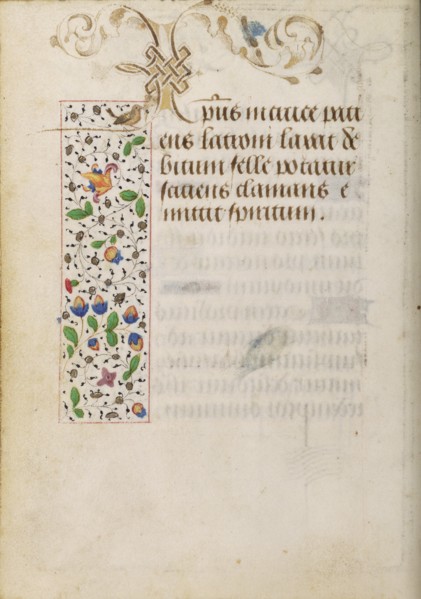 Xp̄us in cruce pati
ens latroni laxat de
bitum felle potatur
sitiens clamans e
mittit spiritum .